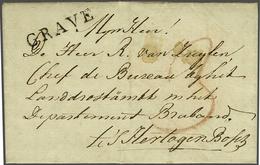 GRAVE
Mijn Heer!
De Heer R. van Zuylen
Chef de Bureau by het
Landdrostambt in het
Departement Braband.
te S Hertogen Bosch